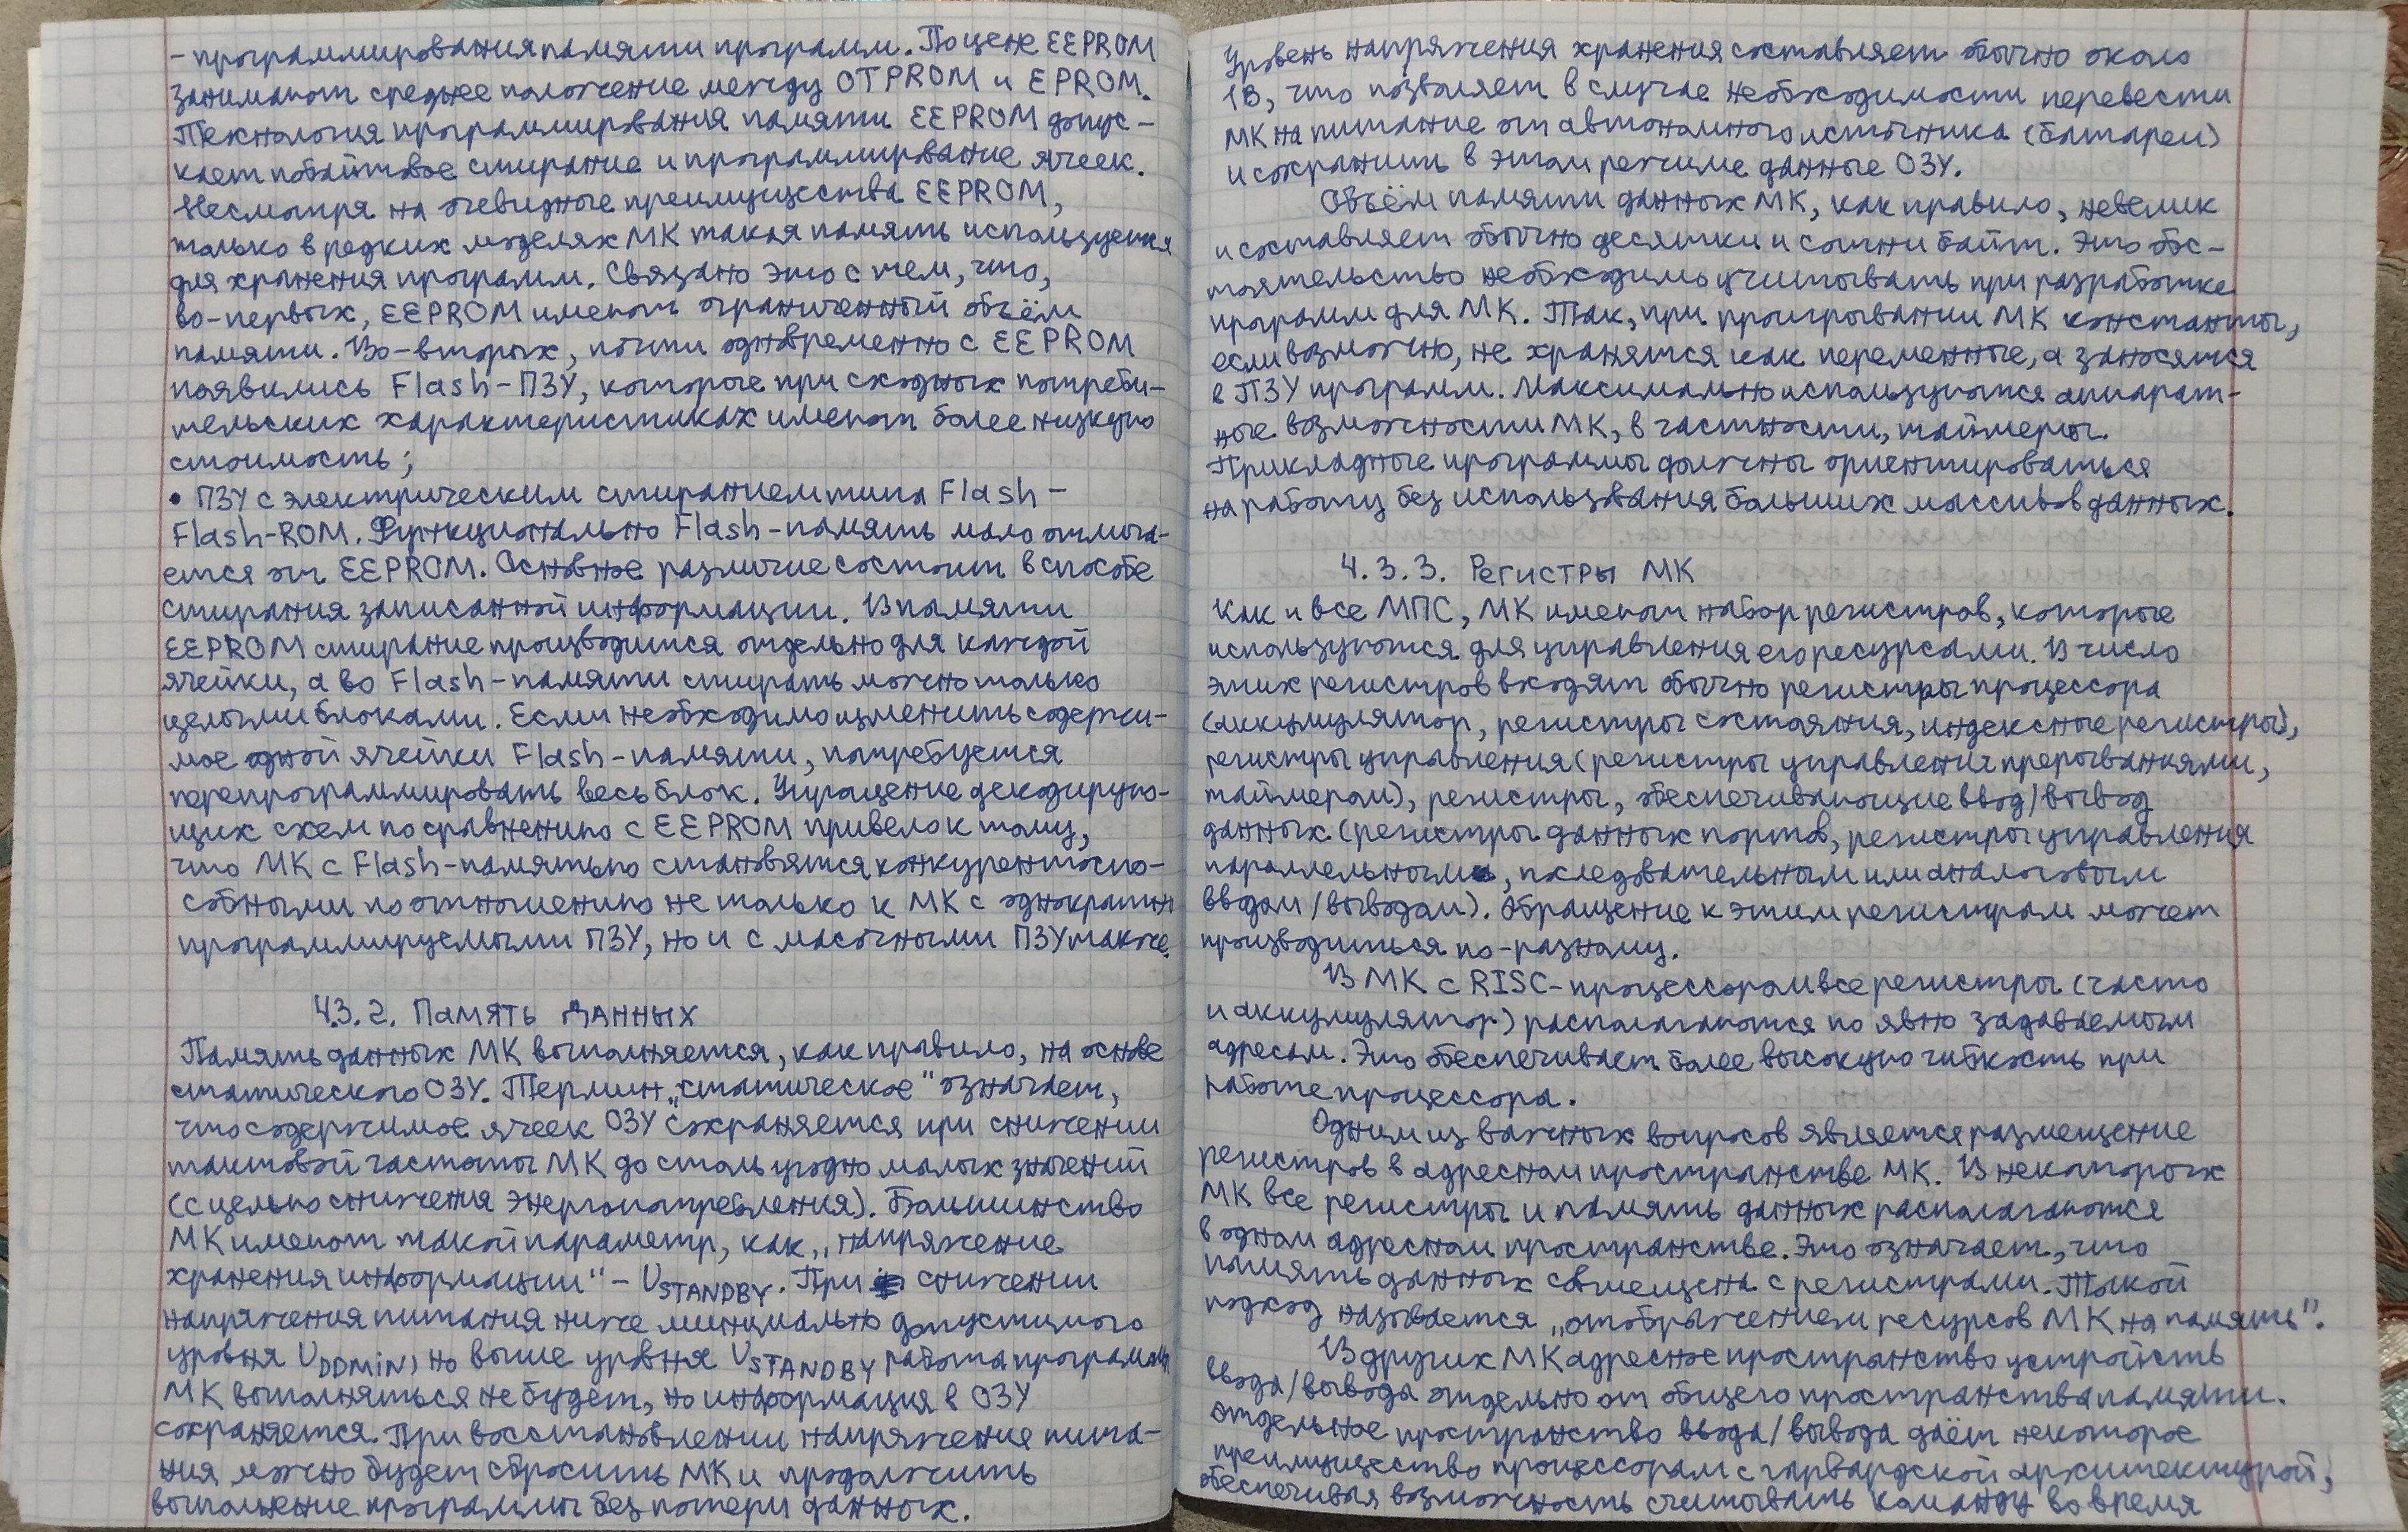 - программирования памяти программ. По цене EEPROM
занимают среднее положение между OTPROM и EPROM.
Технология программирования памяти EEPROM допус-
кает побайтовое стирание и программирование ячеек.
Несмотря на очевидные преимущества EEPROM,
только в редких моделях МК такая память используется
для хранения программ. Связано это с тем, что,
во-первых, EEPROM имеют ограниченный объём
памяти. Во-вторых, почти одновременно с EEPROM
появились Flash-ПЗУ, которые при сходных потреби-
тельских характеристиках имеют более низкую
стоимость;
• ПЗУ с электрическим стиранием типа Flash -
Flash-ROM. Функционально Flash-память мало отлича-
ется от EEPROM. Основное различие состоит в способе
стирания записанной информации. В памяти
EEPROM стирание производится отдельно для каждой
ячейки, а во Flash-памяти стирать можно только
целыми блоками. Если необходимо изменить содержи-
мое одной ячейки Flash-памяти, потребуется
перепрограммировать весь блок. Упрощение декодирую-
щих схем по сравнению с EEPROM привело к тому,
что МК с Flash-памятью становятся конкурентоспо-
собными по отношению не только к МК с однократно
программируемыми ПЗУ, но и с масочными ПЗУ также.
4.3.2. Память данных
Память данных МК выполняется, как правило, на основе
статического ОЗУ. Термин „статическое" означает,
что содержимое ячеек ОЗУ сохраняется при снижении
тактовой частоты МК до столь угодно малых значений
(с целью снижения энергопотребления). Большинство
МК имеют такой параметр, как „напряжение
хранения информации" - USTANDBY. При снижении
напряжения питания ниже минимально допустимого
уровня UDDMIN, но выше уровня USTANDBY работа программы
МК выполняться не будет, но информация в ОЗУ
сохраняется. При восстановлении напряжения пита-
ния можно будет сбросить МК и продолжить
выполнение программы без потери данных.
Уровень напряжения хранения составляет обычно около
1В, что позволяет в случае необходимости перевести
МК на питание от автономного источника (батареи)
и сохранить в этом режиме данные ОЗУ.
Объём памяти данных МК, как правило, невелик
и составляет обычно десятки и сотни байт. Это обс-
тоятельство необходимо учитывать при разработке
программ для МК. Так, при програмировании МК константы,
если возможно, не хранятся как переменные, а заносятся
в ПЗУ программ. Максимально используются аппарат-
ные возможности МК, в частности, таймеры.
Прикладные программы должны ориентироваться
на работу без использования больших массивов данных.
4.3.3. Регистры МК
Как и все МПС, МК имеют набор регистров, которые
используются для управления его ресурсами. В число
этих регистров входят обычно регистры процессора
(аккумулятор, регистры состояния, индексные регистры),
регистры управления (регистры управления прерываниями,
таймером), регистры, обеспечивающие ввод/вывод
данных (регистры данных портов, регистры управления
параллельным, последовательным или аналоговым
вводом/выводом). Обращение к этим регистрам может
производиться по-разному.
В МК с RISC-процессором все регистры (часто
и аккумулятор) располагаются по явно задаваемым
адресам. Это обеспечивает более высокую гибкость при
работе процессора.
Одним из важных вопросов является размещение
регистров в адресном пространстве МК. В некоторых
МК все регистры и память данных располагаются
в одном адресном пространстве. Это означает, что
память данных совмещена с регистрами. Такой
подход называется „отображением ресурсов МК на память".
В других МК адресное пространство устройств
ввода/вывода отдельно от общего пространства памяти.
Отдельное пространство ввода/вывода даёт некоторое
преимущество процессорам с гарвардской архитектурой,
обеспечивая возможность считывать команду во время